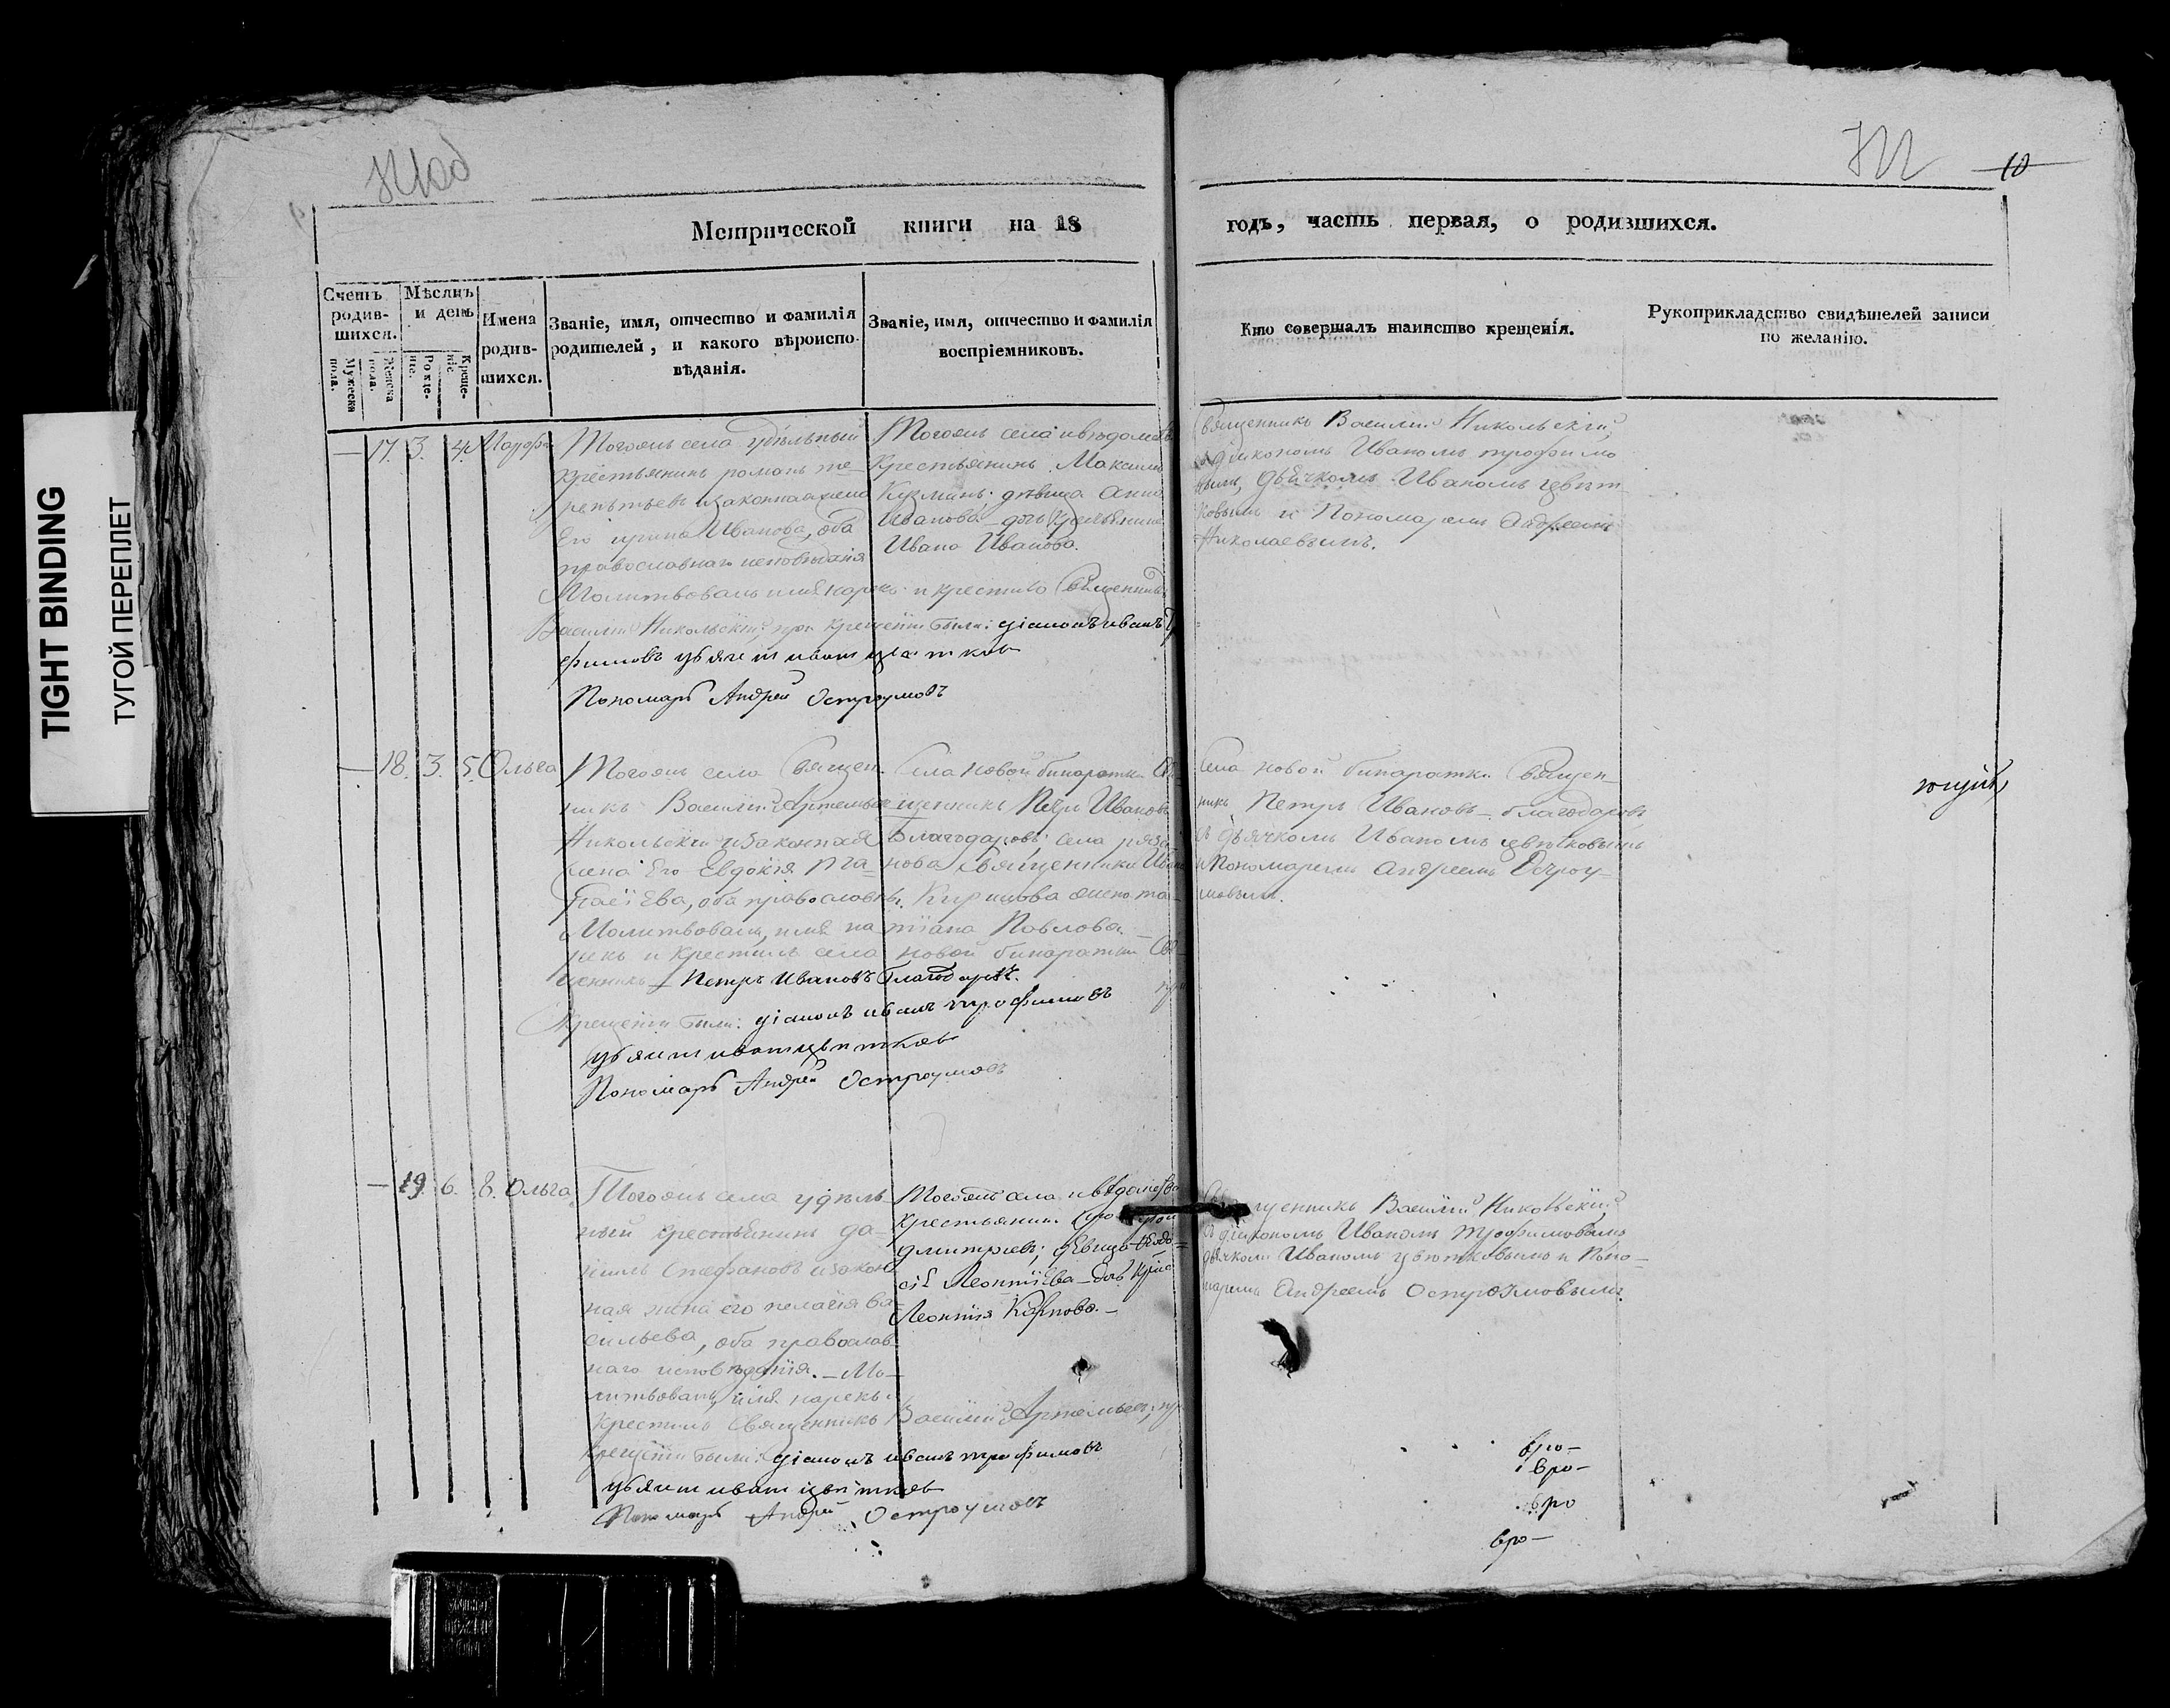 TIGHT BINDING
ТУГОЙ ПЕРЕПЛЕТ
10
Метрической книги на 18
годъ, часть первая, о родившихся.
Счетъ родив-шихся.
Мужеска пола.
Женска пола.
Мѣсяцъ и день
Рожде-ніе.
Креще-ніе
Имена родив-шихся.
Званіе, имя, отчество и фамилія
родителей, и какого вѣроиспо-
вѣданія.
Званіе, имя, отчество и фамилія
воспріемниковъ.
Кто совершалъ таинство крещенія.
Рукоприкладство свидѣтелей записи
по желанію.
17. 3. 4.
Тогожъ села удѣльный
крестьянинъ романъ те-
рентьевъ изаконная жена
Его ирина Иванова, оба
православнаго исповѣданія
Тогожъ села ивѣдомства
Крестьянинъ Максимъ
Кузминъ: дѣвица Анна
Иванова дочь Крестьянина
Ивана Иванова.
Молитвовалъ имя нарекъ и крестилъ Священникъ
Василій Никольскій, при крещеніи были: діаконъ иванъ
фимовъ дьячекъ иванъ цветковъ
Пономарь Андрей Остроумовъ
Священникъ Василій Никольскій,
съ діакономъ Иваномъ трофимо
вымъ, дьячкомъ Иваномъ цвѣт-
ковымъ и Пономаремъ Андреемъ
Николаевымъ.
18. 3. 5. Ольга
Тогожъ села Священ-
никъ Василій Артемьевъ
Никольскій изаконная
жена Его Евдокія
оба православны.
Молитвовалъ, имя на
рекъ и крестилъ села новой бинарадки Свя
щенникъ Петръ Ивановъ Благодаровъ.
крещеніи были: діаконъ иванъ трофимовъ
дьячекъ иванъ цветковъ
Пономарь Андрей Остроумовъ
Села Новой бинарадки Свя
щенникъ Петръ Ивановъ
Благодаровъ; села
нова Священника Ивана
Павлова.
Села Новой бинарадки Священ-
никъ Петръ Ивановъ благодаровъ
съ дьячкомъ Иваномъ цвѣтковымъ
и Пономаремъ Андреемъ Остроу-
мовымъ.
19. 6. 8. Ольга
Тогожъ села удѣль
ный крестьянинъ да-
ніилъ Стефановъ изакон
ная жена его пелагія ва-
сильева, оба православ-
наго исповѣданія. – Мо-
литвовалъ имя нарекъ и
крестилъ Священникъ Василій Артемьевъ; при
крещеніи были: діаконъ иванъ трофимовъ
дьячекъ иванъ цветковъ
Пономарь Андрей Остроумовъ
Тогожъ села ивѣдомства
крестьянинъ
дмитріевъ; дѣвица
Леонтіева – дочь
Леонтія Карпова. –
Священникъ Василій Никольскій,
съ діакономъ Иваномъ Трофимовымъ
дьячкомъ Иваномъ цвѣтковымъ и Поно-
маремъ Андреемъ Остроумовымъ.
вро-
вро-
вро
вро-